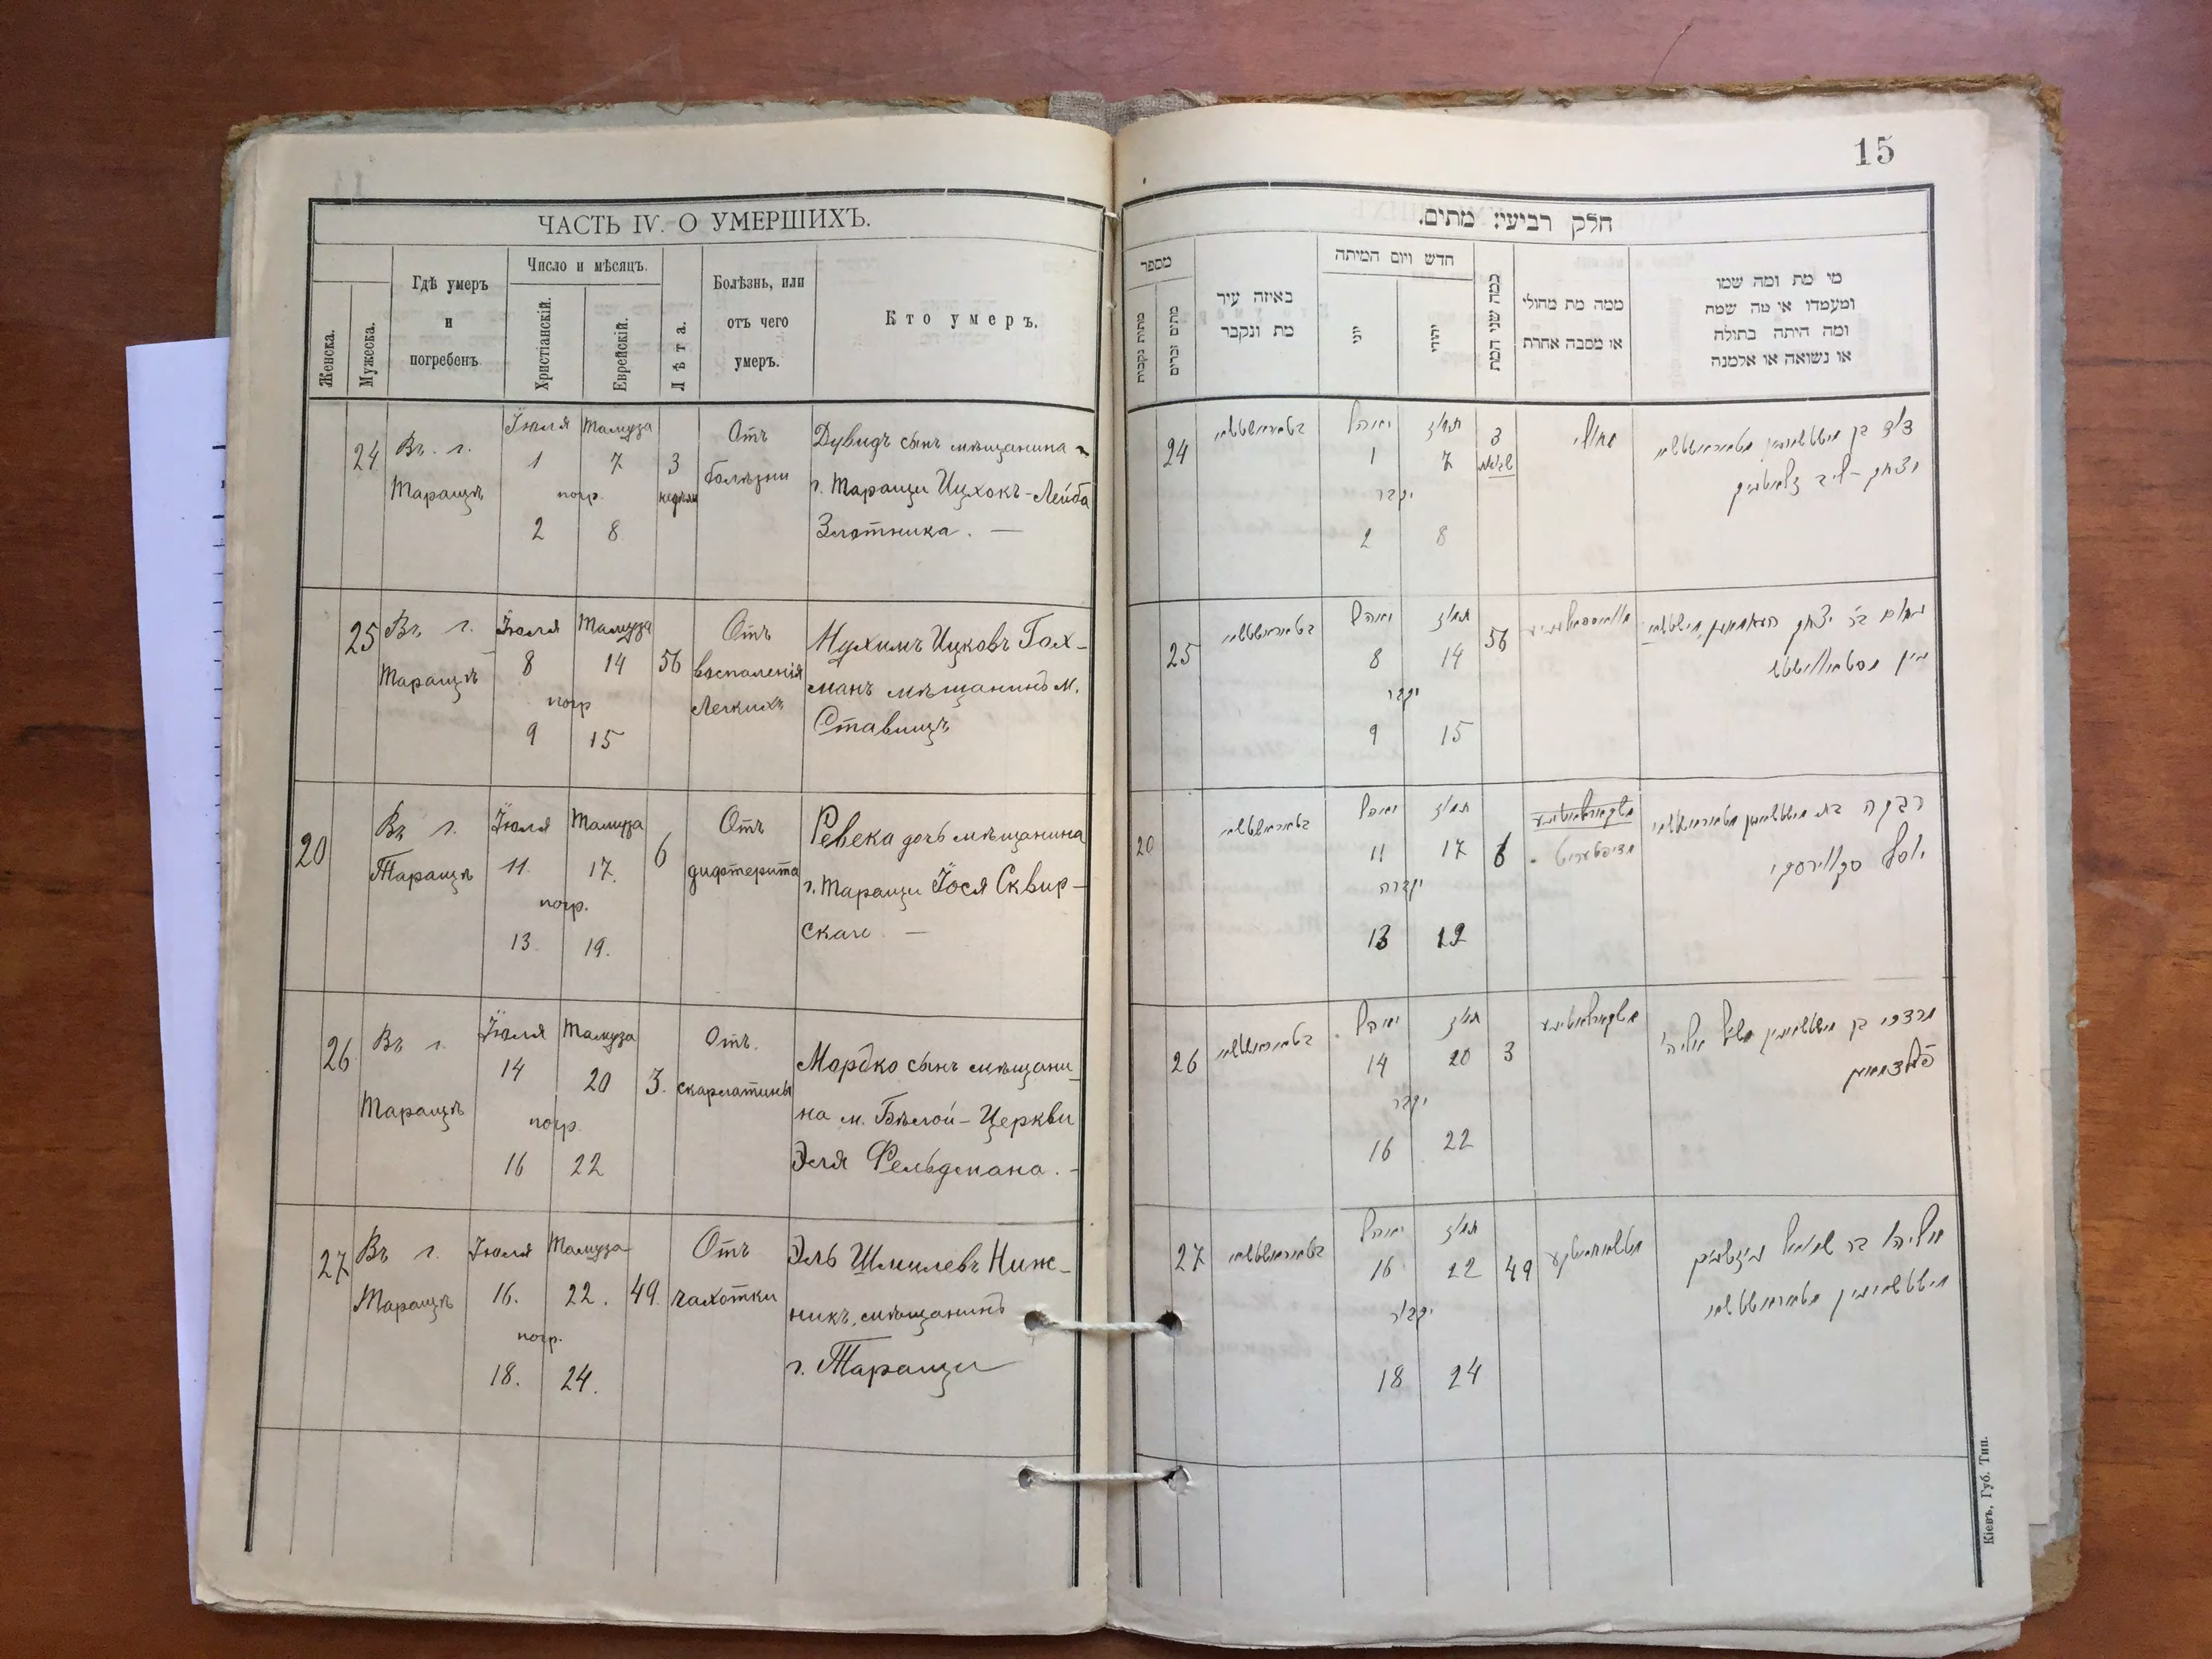 ЧАСТЬ IV. О УМЕРШИХЪ.
Женска.
Мужеска.
Гдѣ умеръ
и
погребенъ
Число и мѣсяцъ.
Христіанскій.
Еврейскій.
Лѣта.
Болѣзнь, или
отъ чего
умеръ.
Кто умеръ.
24
Въ г.
Таращѣ
Іюля
1
погр.
2
Тамуза
7
8
3
недѣли
Отъ
болѣзни
Дувидъ сынъ мѣщанина
г. Таращи Ицхокъ-Лейба
Злотника. —
25
Въ г.
Таращѣ
Іюля
8
погр
9
Тамуза
14
15
56
Отъ
воспаленія
Легкихъ
Нухимъ Ицковъ Гох-
манъ мѣщанинъ м.
Ставищъ
20
Въ г.
Таращѣ
Іюля
11.
погр.
13.
Тамуза
17.
19.
6
Отъ
дифтерита
Ревека дочь мѣщанина
г. Таращи Іося Сквир-
скаго —
26
Въ г.
Таращѣ
Іюля
14
погр.
16
Тамуза
20
22
3.
Отъ.
скарлатины
Мордко сынъ мѣщани-
на м. Бѣлой-Церкви
Эля Фельдмана. -
27
Въ г.
Таращѣ
Іюля
16.
погр.
18.
Тамуза
22.
24.
49.
Отъ
чахотки
Эль Шмилевъ Ниж-
никъ, мѣщанинъ
г. Таращи
15
חלק רביעי מתים.
מספר
מתות נקבות
מתים זכרים
באיזה עיר
מת ונקבר
חדש ויום המיתה
יוני
יהודי
כמה שני המת
ממה מת מחולי
או מסבה אחרת
מי מת ומה שמו
ומעמדו או מה שמת
ומה היתה בתולה
או נשואה או אלמנה
24
בטאראשטשי
יואהל
1
יקבר
2
תמוז
7
8
3
שבועות
דוד בן
יצחק-ליב זלאטניק
25
בטאראשטשי
יואהל
8
יקבר
9
תמוז
14
15
56
נחום בר יצחק
20
בטאראשטשי
יואהל
11
יקברה
13
תמוז
17
19
6
סקארלאטינע
מדיפטעריט
רבקה בת
יוסף סקווירסקי
26
בטאראשטשי
יואהל
14
יקבר
16
תמוז
20
22
3
סקארלאטינע
מרדכי בן
פעלדמאן
27
בטאראשטשי
יואהל
16
יקבר
18
תמוז
22
24
49
אליהו בר שמואל
Кіевъ, Губ. Тип.